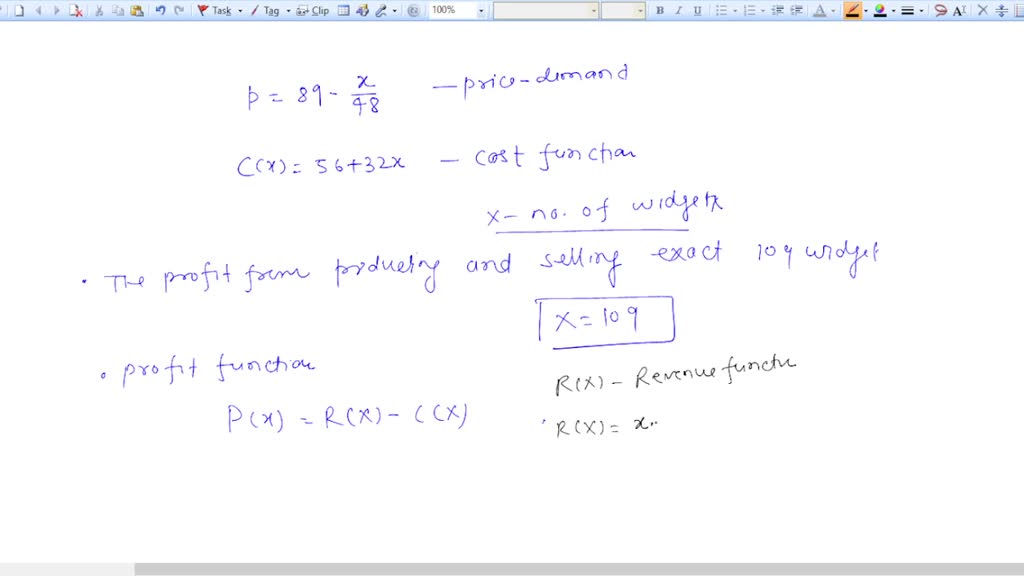 Task Tag Clip 100% B I U A
p = 89 - x/48 — price-demand
C(x) = 56+32x — cost function
x- no. of widgets
• The profit from producting and selling exact 109 widget
x = 109
• profit function
R(x) - Revenue functn
P(x) = R(x) - C(x)
R(x) = x.